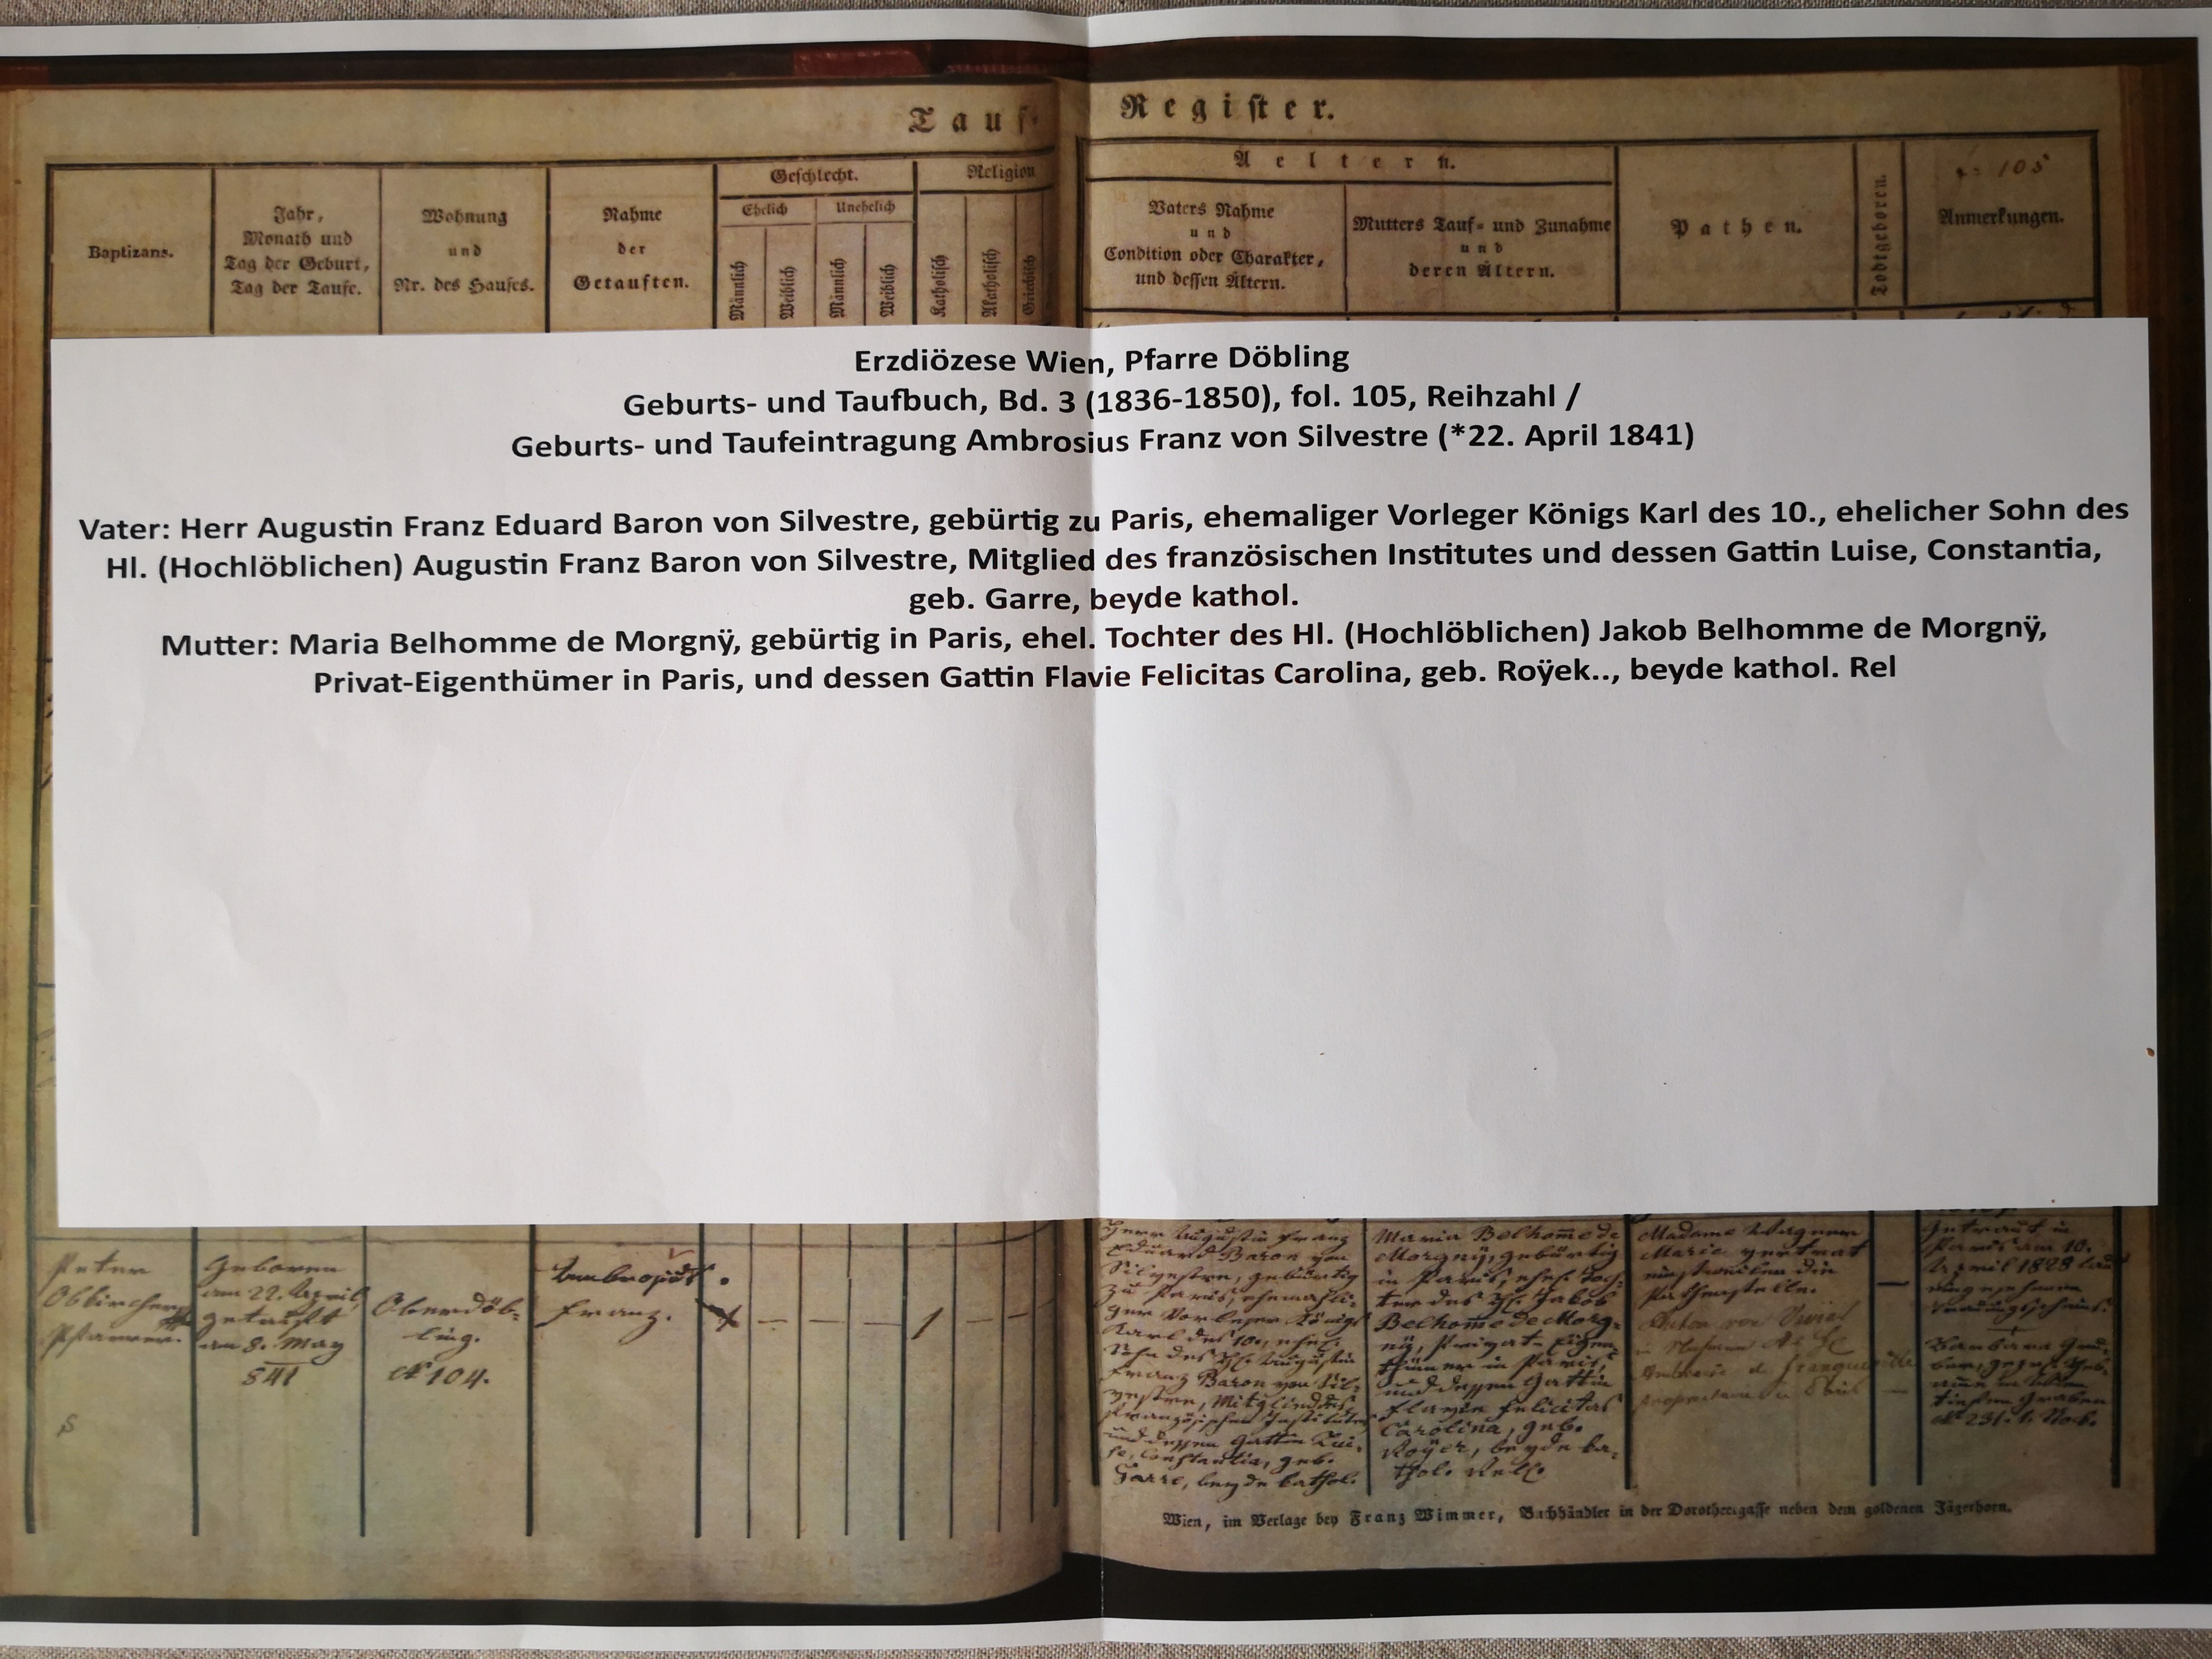 Tauf-Register.
Baptizans.
Jahr,
Monath und
Tag der Geburt,
Tag der Taufe.
Wohnung
und
Nr. des Hauses.
Nahme
der
Getauften.
Geschlecht.
Ehelich
Unehelich
Männlich
Weiblich
Männlich
Weiblich
Religion
Katholisch
Akatholisch
Griechisch
Aeltern.
Vaters Nahme
und
Condition oder Charakter,
und dessen Ältern.
Mutters Tauf- und Zunahme
und
deren Ältern.
Pathen.
Todtgeboren.
105
Anmerkungen.
Erzdiözese Wien, Pfarre Döbling
Geburts- und Taufbuch, Bd. 3 (1836-1850), fol. 105, Reihzahl /
Geburts- und Taufeintragung Ambrosius Franz von Silvestre (*22. April 1841)
Vater: Herr Augustin Franz Eduard Baron von Silvestre, gebürtig zu Paris, ehemaliger Vorleger Königs Karl des 10., ehelicher Sohn des
Hl. (Hochlöblichen) Augustin Franz Baron von Silvestre, Mitglied des französischen Institutes und dessen Gattin Luise, Constantia,
geb. Garre, beyde kathol.
Mutter: Maria Belhomme de Morgnÿ, gebürtig in Paris, ehel. Tochter des Hl. (Hochlöblichen) Jakob Belhomme de Morgnÿ,
Privat-Eigenthümer in Paris, und dessen Gattin Flavie Felicitas Carolina, geb. Roÿek.., beyde kathol. Rel
Peter
Obkircher
Pfarrer.
Geboren
am 22. April,
getauft
am 8. May
841
Oberdöb-
ling.
N 104.
Ambrosius
Franz.
1
Herr Augustin Franz
Eduard Baron von
Silvestre, gebürtig
zu Paris, ehemali-
ger Vorleger Königs
Karl des 10., ehel.
Sohn des Hl. Augustin
Franz Baron von Sil-
vestre, Mitglied des
französischen Institutes
und dessen Gattin Lui-
se, Constantia, geb.
Garre, beyde kathol.
Maria Belhom̅e de
Morgnÿ, gebürtig
in Paris, ehel. Toch-
ter des Hl. Jakob
Belhom̅e de Morg-
nÿ, Privat-Eigen-
thümer in Paris,
und dessen Gattin
Flavie Felicitas
Carolina, geb.
Roÿer, beyde ka-
thol. Rel.
Madame Wagner
Marie vertrat
einstweilen die
Pathenstelle.
Anton von
in
de
Getraut in
Paris am 10.
April 1828 laut
eingesehenem
Trauungsscheine.
Barbara Gru-
ber, Heb-
am̅e im
tiefen Graben
N 231
Wien, im Verlage bey Franz Wimmer, Buchhändler in der Dorotheergasse neben dem goldenen Jägerhorn.